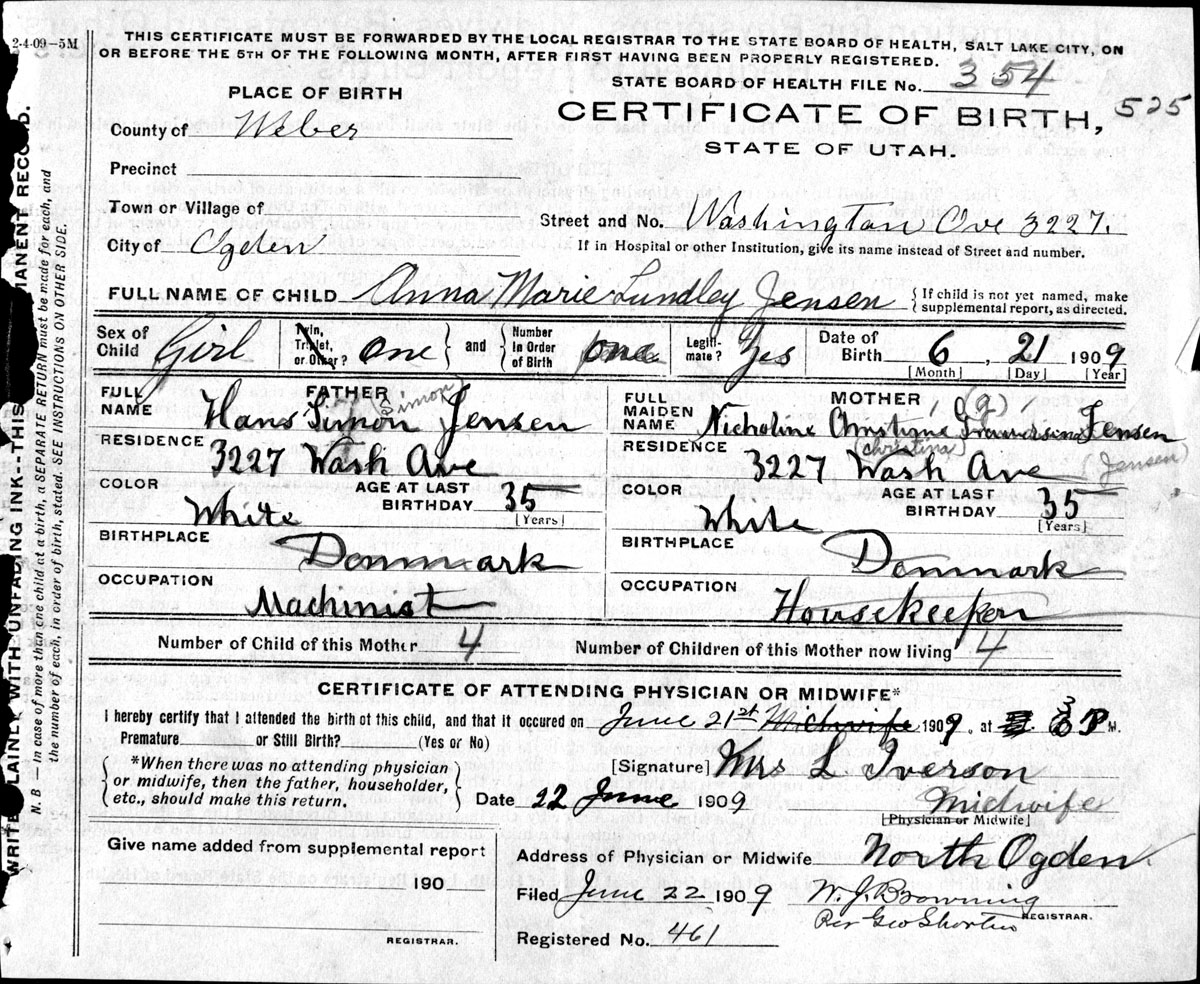 2-4-09-5M
THIS CERTIFICATE MUST BE FORWARDED BY THE LOCAL REGISTRAR TO THE STATE BOARD OF HEALTH, SALT LAKE CITY, ON
OR BEFORE THE 5TH OF THE FOLLOWING MONTH, AFTER FIRST HAVING BEEN PROPERLY REGISTERED.
STATE BOARD OF HEALTH FILE No. 354
PLACE OF BIRTH
CERTIFICATE OF BIRTH, 525
STATE OF UTAH.
County of Weber
Precinct
Town or Village of
Street and No. Washington Ave 3227.
City of Ogden
If in Hospital or other Institution, give its name instead of Street and number.
FULL NAME OF CHILD Anna Marie Lundley Jensen {If child is not yet named, make
supplemental report, as directed.
Sex of Child Girl Twin, Triplet, or Other? one } and { Number In Order of Birth one Legiti-mate? Yes Date of Birth 6, 21 1909
[Month] [Day] [Year]
FATHER
FULL NAME Hans Simon Jensen (Simon)
RESIDENCE 3227 Wash Ave
COLOR White AGE AT LAST BIRTHDAY 35
[Years]
BIRTHPLACE Denmark
OCCUPATION Machinist
MOTHER (g)
FULL MAIDEN NAME Nicholine Christine Jensen
(Christina) (Jensen)
RESIDENCE 3227 Wash Ave
COLOR White AGE AT LAST BIRTHDAY 35
[Years]
BIRTHPLACE Denmark
OCCUPATION Housekeeper
Number of Child of this Mother 4 Number of Children of this Mother now living 4
CERTIFICATE OF ATTENDING PHYSICIAN OR MIDWIFE*
I hereby certify that I attended the birth of this child, and that it occured on June 21st Midwife 1909, at 3 P M.
Premature or Still Birth? (Yes or No)
*When there was no attending physician
or midwife, then the father, householder,
etc., should make this return.
[Signature] Mrs L Iverson
Date 22 June 1909 Midwife
[Physician or Midwife]
Give name added from supplemental report
190
REGISTRAR.
Address of Physician or Midwife North Ogden
Filed June 22 1909 W. J. Browning
Per Geo Shorten REGISTRAR.
Registered No. 461
WRITE PLAINLY WITH UNFADING INK--THIS PERMANENT RECORD.
N. B.—In case of more than one child at a birth, a SEPARATE RETURN must be made for each, and
the number of each, in order of birth, stated. SEE INSTRUCTIONS ON OTHER SIDE.